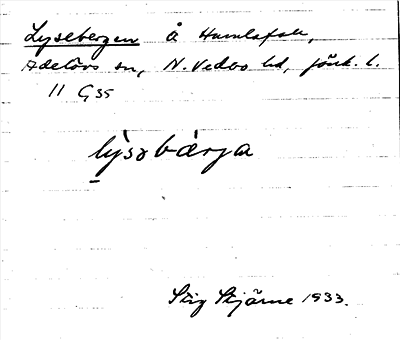 Lysebergen å Humlafall,
Adelövs sn, N. Vedbo hd, Jönk. l.
11 G35
lỳsəbærja
Stig Stjärne 1933.